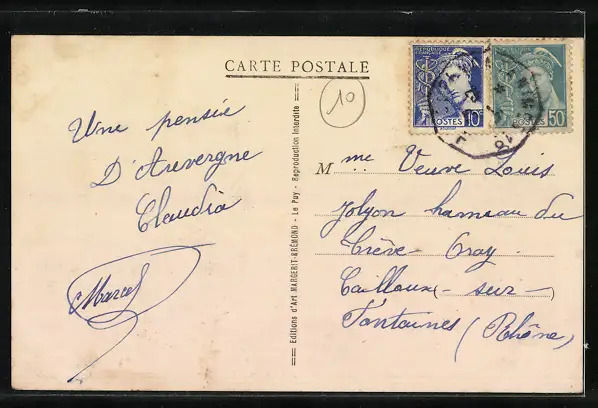 CARTE POSTALE
10
RÉPUBLIQUE FRANÇAISE
POSTES 10c
POSTES 50c
Une pensée
D'Auvergne
Claudia
Marcel
Editions d'Art MARGERIT-BRÉMOND - Le Puy - Reproduction Interdite
Mme Veuve Louis
Jolyon hameau du
Crève Cray
Cailloux-sur-
Fontaines (Rhône)